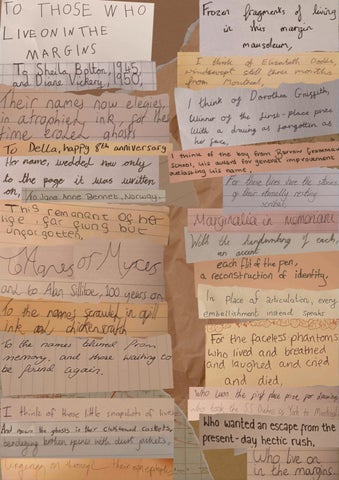 TO THOSE WHO
LIVE ON IN THE
MARGINS
To Sheila Bolton, 1945,
and Diane Vickery, 1950,
Their names now elegies,
in atrophied ink, for the
time eroded ghosts
To Della, happy 8th anniversary
Her name, wedded now only
to the page it was written
on,
to Jane Anne Bennets, Norway.
This remnant of her
life, far flung but
unforgotten,
To Agnes
and to Alan Sillitoe, 100 years on
To the names scrawled in quill
ink and chicken scratch
To the names blurred from
memory, and those waiting to
be found again.
I think of these little snapshots of lives
And now the ghosts in their cloistered caskets,
bandaging broken spines with dust jackets,
on through their
Frozen fragments of living
in this margin
mausoleum,
I think of Elizabeth
still three months
from Montreal,
I think of Dorothea Griffith,
Winner of the first-place prize
With a drawing as forgotten as
her face,
I think of the boy from Barrow Grammar
School, his award for general improvement
outlasting his name,
For these lines are the stones
of their eternally resting
Marginalia in memoriam
With the handwriting of each,
an accent
each flit of the pen,
a reconstruction of identity,
In place of articulation, every
embellishment instead speaks
For the faceless phantoms
who lived and breathed
and laughed and cried
and died,
Who won the first place prize for drawing
who took the
Who wanted an escape from the
present-day hectic rush,
Who live on
in the margins.